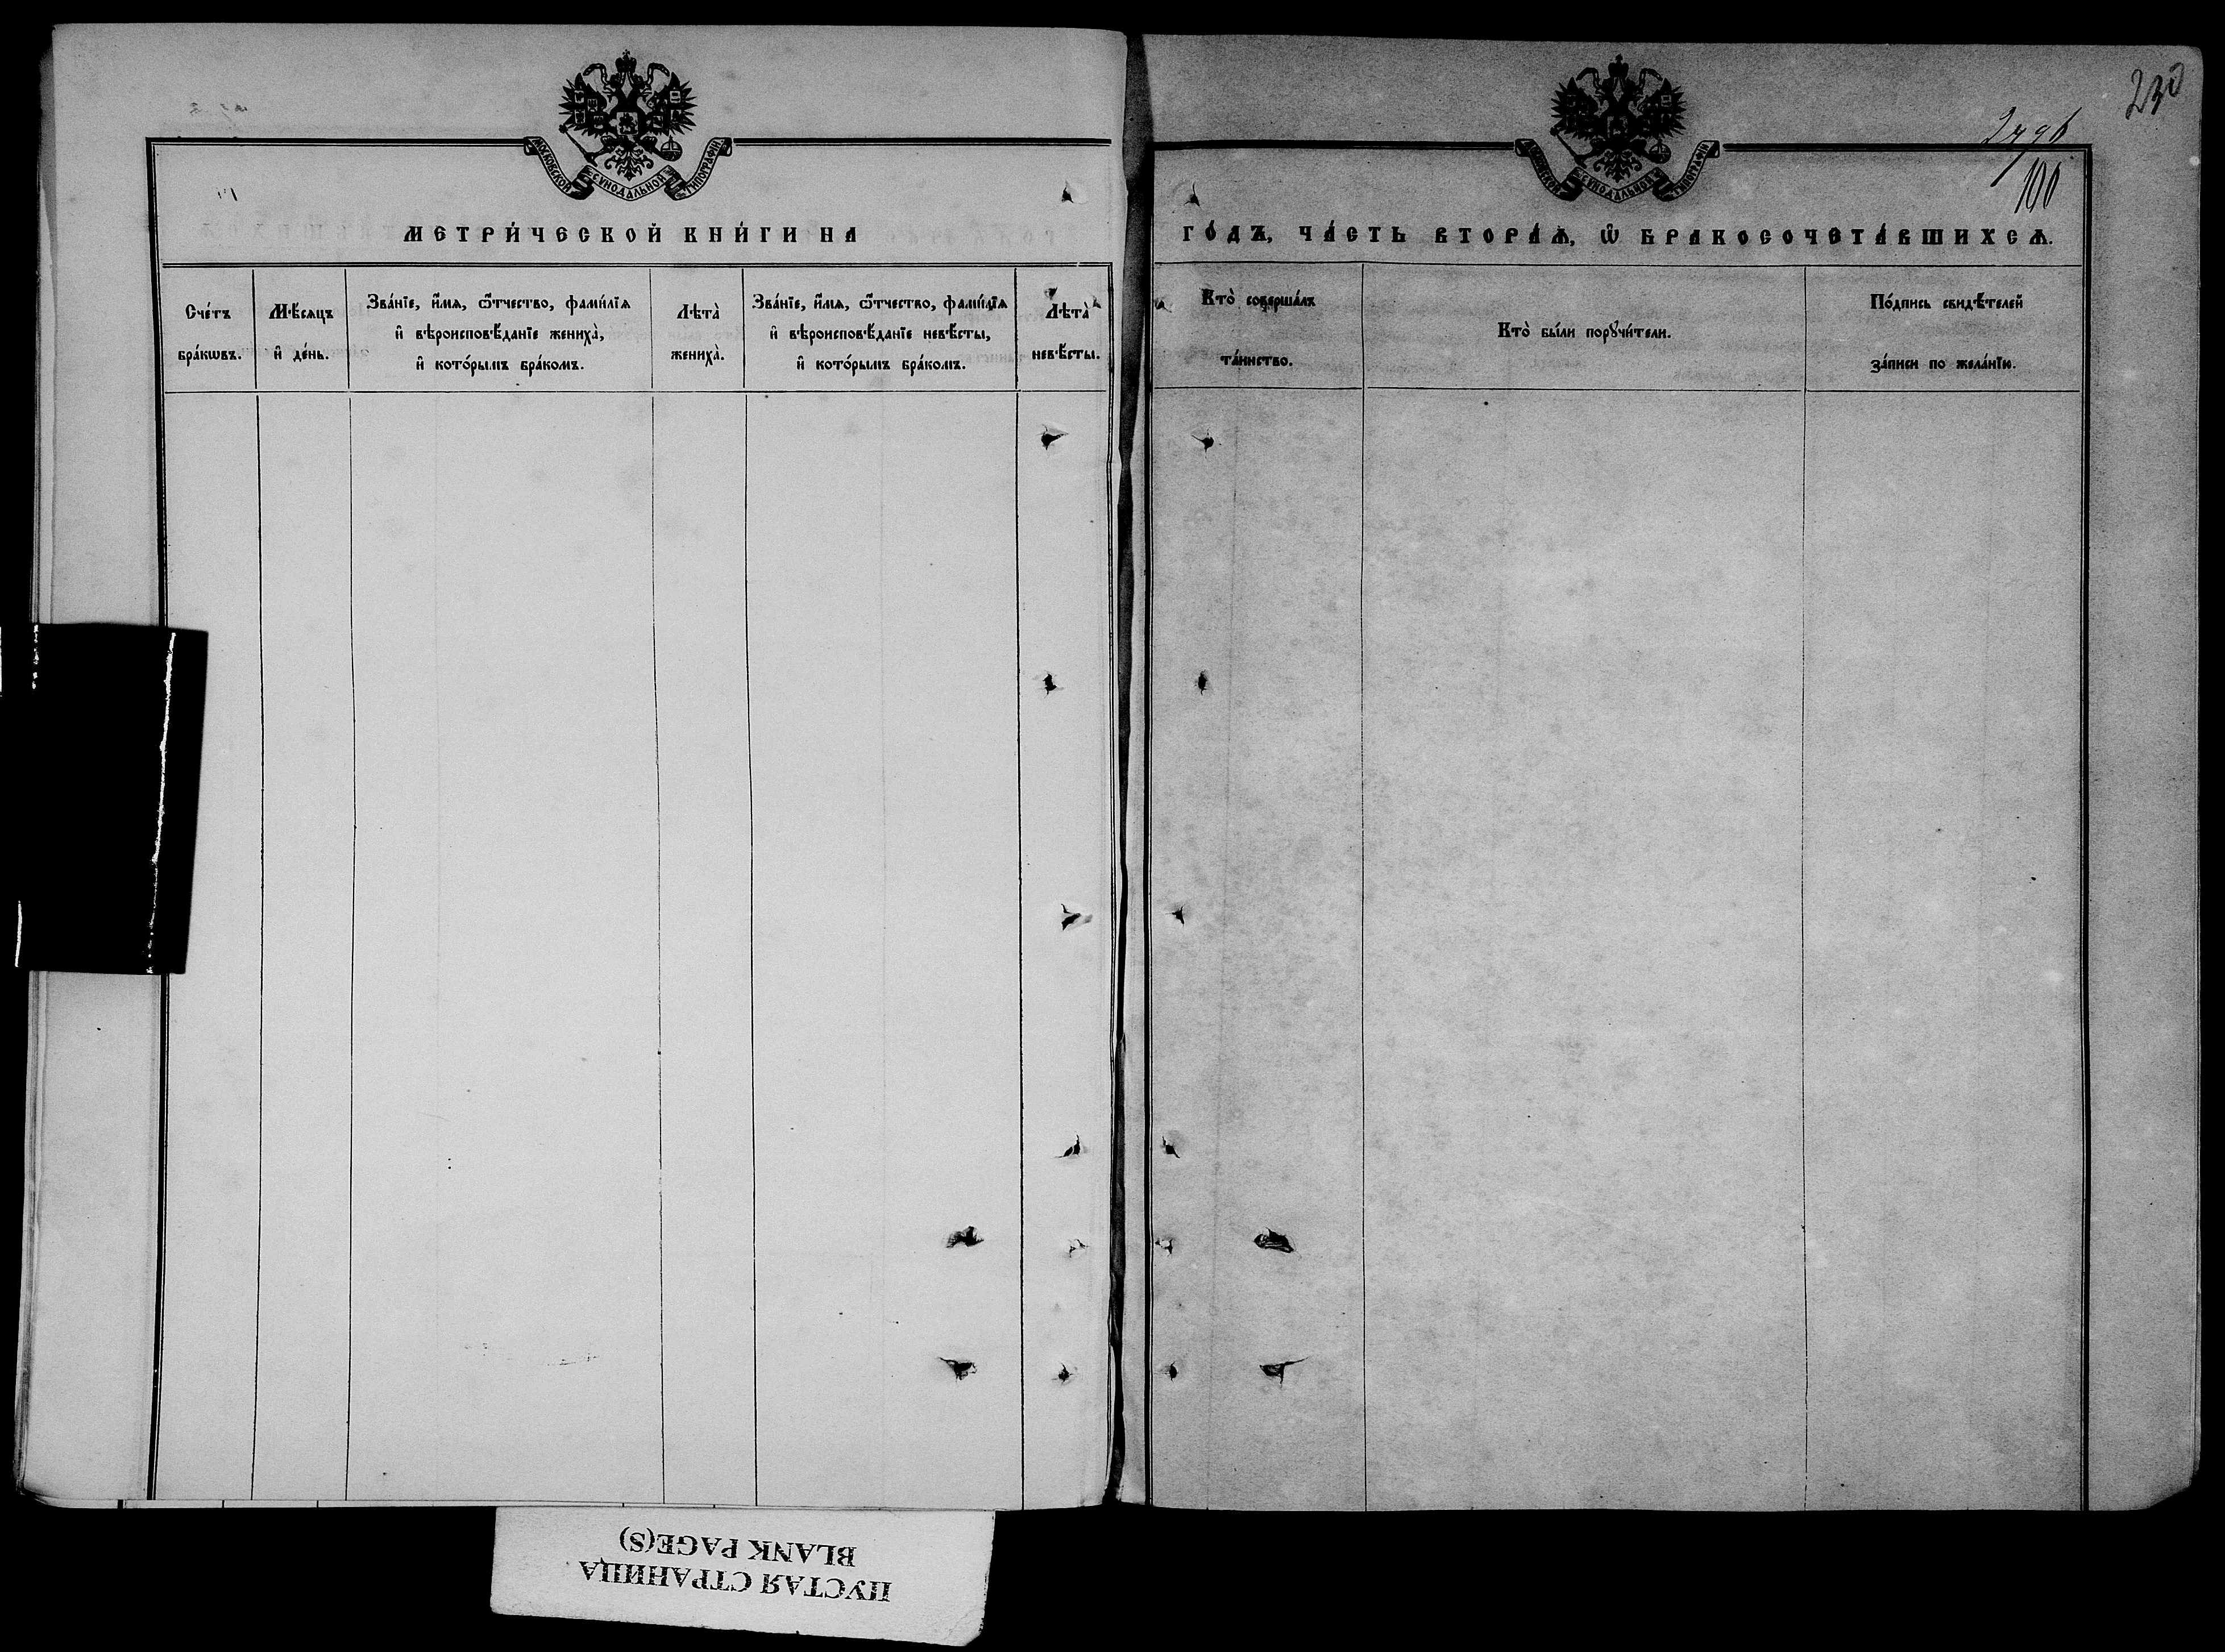 МОСКОВСКОЙ СУНОДАЛЬНОЙ ТИПОГРАФІИ
МЕТРИ́ЧЕСКОЙ КНИ́ГИ НА
Сче́тъ
бра́кѡвъ.
Мѣ́сяцъ
и҆ де́нь.
Зва́нїе, и҆́мѧ, ѻ҆́тчество, фами́лїѧ
и҆ вѣроисповѣ́данїе жениха̀,
и҆ кото́рымъ бра́комъ.
Лѣта̀
жениха̀.
Зва́нїе, и҆́мѧ, ѻ҆́тчество, фами́лїѧ
и҆ вѣроисповѣ́данїе невѣ́сты,
и҆ кото́рымъ бра́комъ.
Лѣта̀
невѣ́сты.
230
100
МОСКОВСКОЙ СУНОДАЛЬНОЙ ТИПОГРАФІИ
ГО́ДЪ, ЧА́СТЬ ВТОРА́Ѧ, Ѡ҆ БРАКОСОЧЕТА́ВШИХСѦ.
Кто̀ соверша́лъ
та́инство.
Кто̀ бы́ли порꙋчи́тели.
По́дпись свидѣ́телей
за́писи по жела́нїю.
ПУСТАЯ СТРАНИЦА
BLANK PAGE(S)